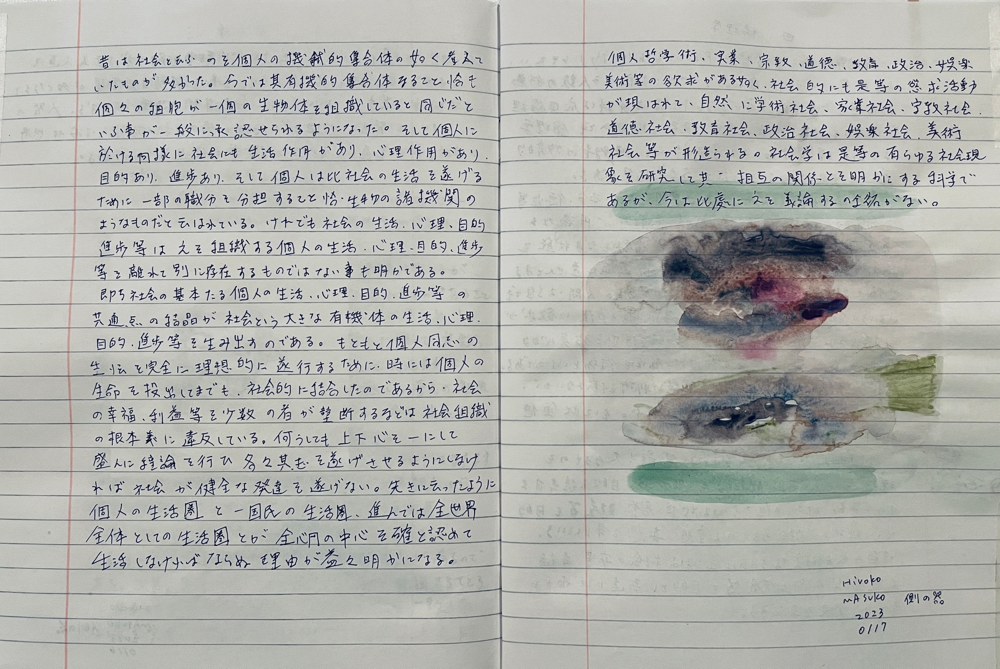 昔は社会と云ふのを個人の機械的集合体の如く考えて
いたものが多かった。今では其有機的集合体なること、恰も
個々の細胞が一個の生物体を組織していると同じだと
いふ事が一般に承認せられるようになった。そして個人に
於ける同様に社会にも生活作用があり、心理作用があり、
目的あり、進歩あり、そして個人は此社会の生活を遂げる
ために一部の職分を分担すること恰も生物の諸機関の
ようなものだと云はれている。けれども社会の生活、心理、目的
進歩等は之を組織する個人の生活、心理、目的、進歩
等を離れて別に存在するものではない事も明かである。
即ち社会の基本たる個人の生活、心理、目的、進歩等の
共通点の結晶が社会という大きな有機体の生活、心理、
目的、進歩等を生み出すのである。もともと個人同志の
生活を完全に理想的に遂行するために、時には個人の
生命を投出してまでも、社会的に結合したのであるから、社会
の幸福、利益等を少数の者が壟断するなどは社会組織
の根本義に違反している。何うしても上下心を一にして
盛んに経論を行ひ各々其志を遂げさせるようにしなけ
れば社会が健全な発達を遂げない。先きに云ったように
個人の生活圏と一国民の生活圏、進んでは全世界
全体としての生活圏とが全心円の中心を確と認めて
生活しなければならぬ理由が益々明かになる。
個人哲学術、実業、宗教、道徳、教育、政治、娯楽
美術等の欲求がある如く、社会的にも是等の慾求活動
が現はれて、自然に学術社会、実業社会、宗教社会、
道徳社会、教育社会、政治社会、娯楽社会、美術
社会等が形造られる。社会学は是等の有らゆる社会現
象を研究して其、相互の関係とを明かにする科学で
あるが、今は此處に之を義論する必要がない。
Hiroko
MASUKO 側の器
2023
0117